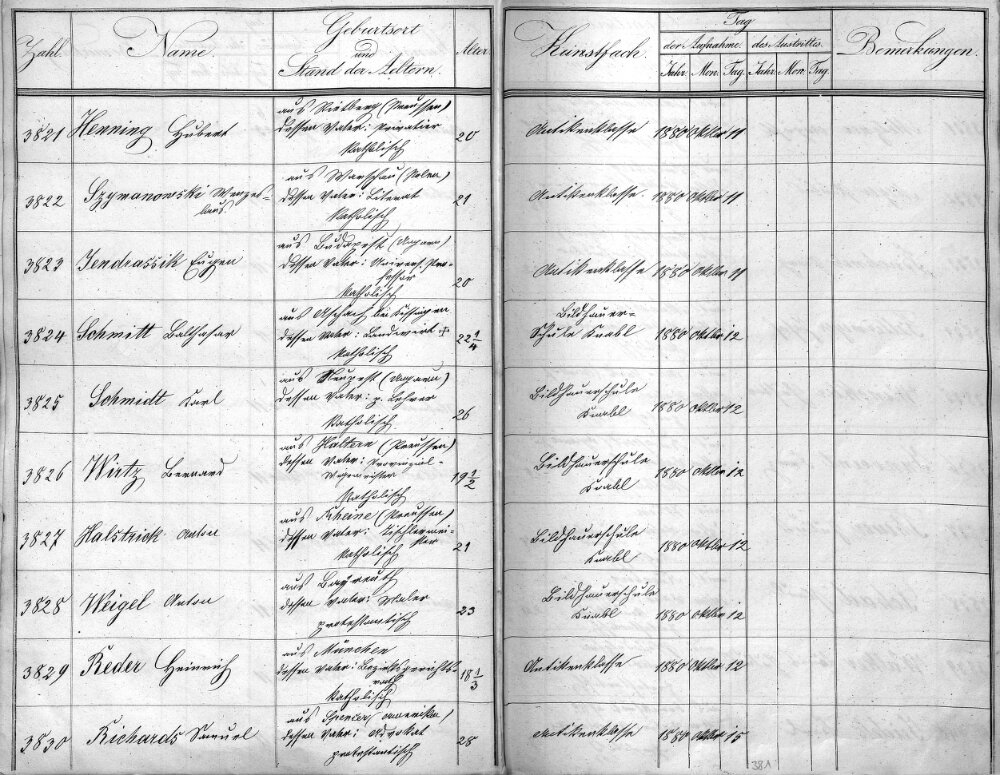 Zahl. Name. Geburtsort und Stand der Aeltern. Alter. Kunstfach. Tag der Aufnahme. des Austrittes. Bemerkungen.
Jahr. Mon. Tag. Jahr. Mon. Tag.
aus Rietberg (Preussen)
3821 Henning Hubert dessen Vater: Privatier 20 Antikenklasse 1880 Oktbr 11
katholisch
aus Warschau (Polen)
3822 Szymanowski Wenzes- dessen Vater: Literat 21 Antikenklasse 1880 Oktbr 11
laus. katholisch
aus Budapest (Ungarn)
3823 Jendrassik Eugen dessen Vater: Univers. Pro-
fessor 20 Antikenklasse 1880 Oktbr 11
katholisch
aus Aschach bei Kissingen Bildhauer-
3824 Schmitt Balthasar dessen Vater: Landwirt 22 1/4 Schule Knabl 1880 Oktbr 12
katholisch
aus Neupest (Ungarn)
3825 Schmidt Karl dessen Vater: Lehrer 26 Bildhauerschule Knabl 1880 Oktbr 12
katholisch
aus Haltern (Preussen)
3826 Wirtz Bernard dessen Vater: Provinzial- 19 1/2 Bildhauerschule Knabl 1880 Oktbr 12
katholisch
aus Rheine (Preussen)
3827 Halstrick Anton dessen Vater: Tischlermei-
ster 21 Bildhauerschule Knabl 1880 Oktbr 12
katholisch
aus Bayreuth
3828 Weigel Anton dessen Vater: Maler 23 Bildhauerschule Knabl 1880 Oktbr 12
protestantisch
aus München
3829 Reder Heinrich dessen Vater: Bezirksgerichts-
rath 18 1/3 Antikenklasse 1880 Oktbr 12
katholisch
aus Spencer (Amerika)
3830 Richards Samuel dessen Vater: Advokat 28 Antikenklasse 1880 Oktbr 15
protestantisch
381